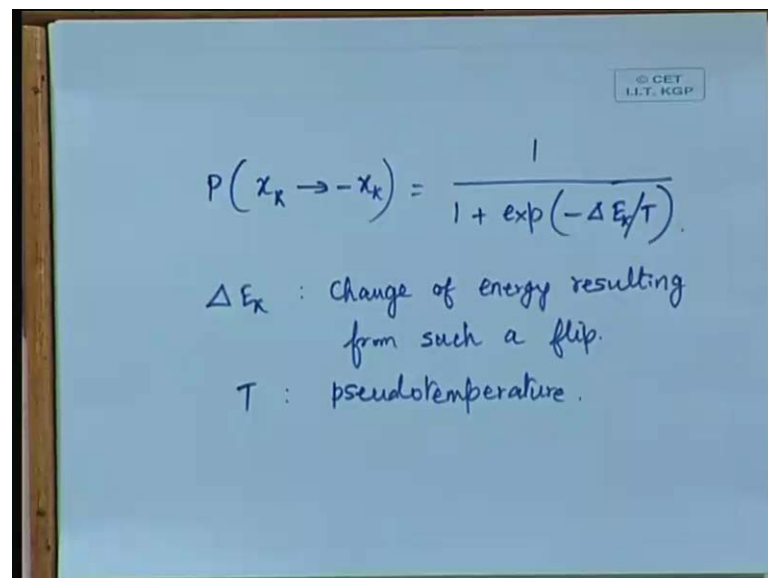 © CET
I.I.T. KGP
P(x_K → -x_K) = 1 / (1 + exp(-ΔE_K/T)).
ΔE_K : Change of energy resulting
from such a flip.
T : pseudotemperature.